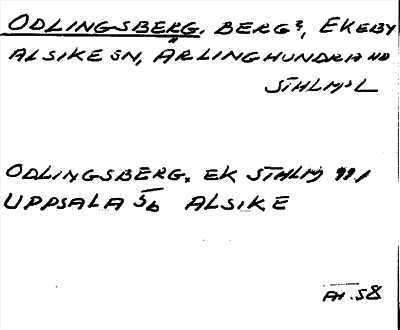 ODLINGSBERG. BERG?, EKEBY
ALSIKE SN, ÄRLINGHUNDRA HD
STHLMS L
ODLINGSBERG. EK STHLM 99/
UPPSALA 5b ALSIKE
AI.58